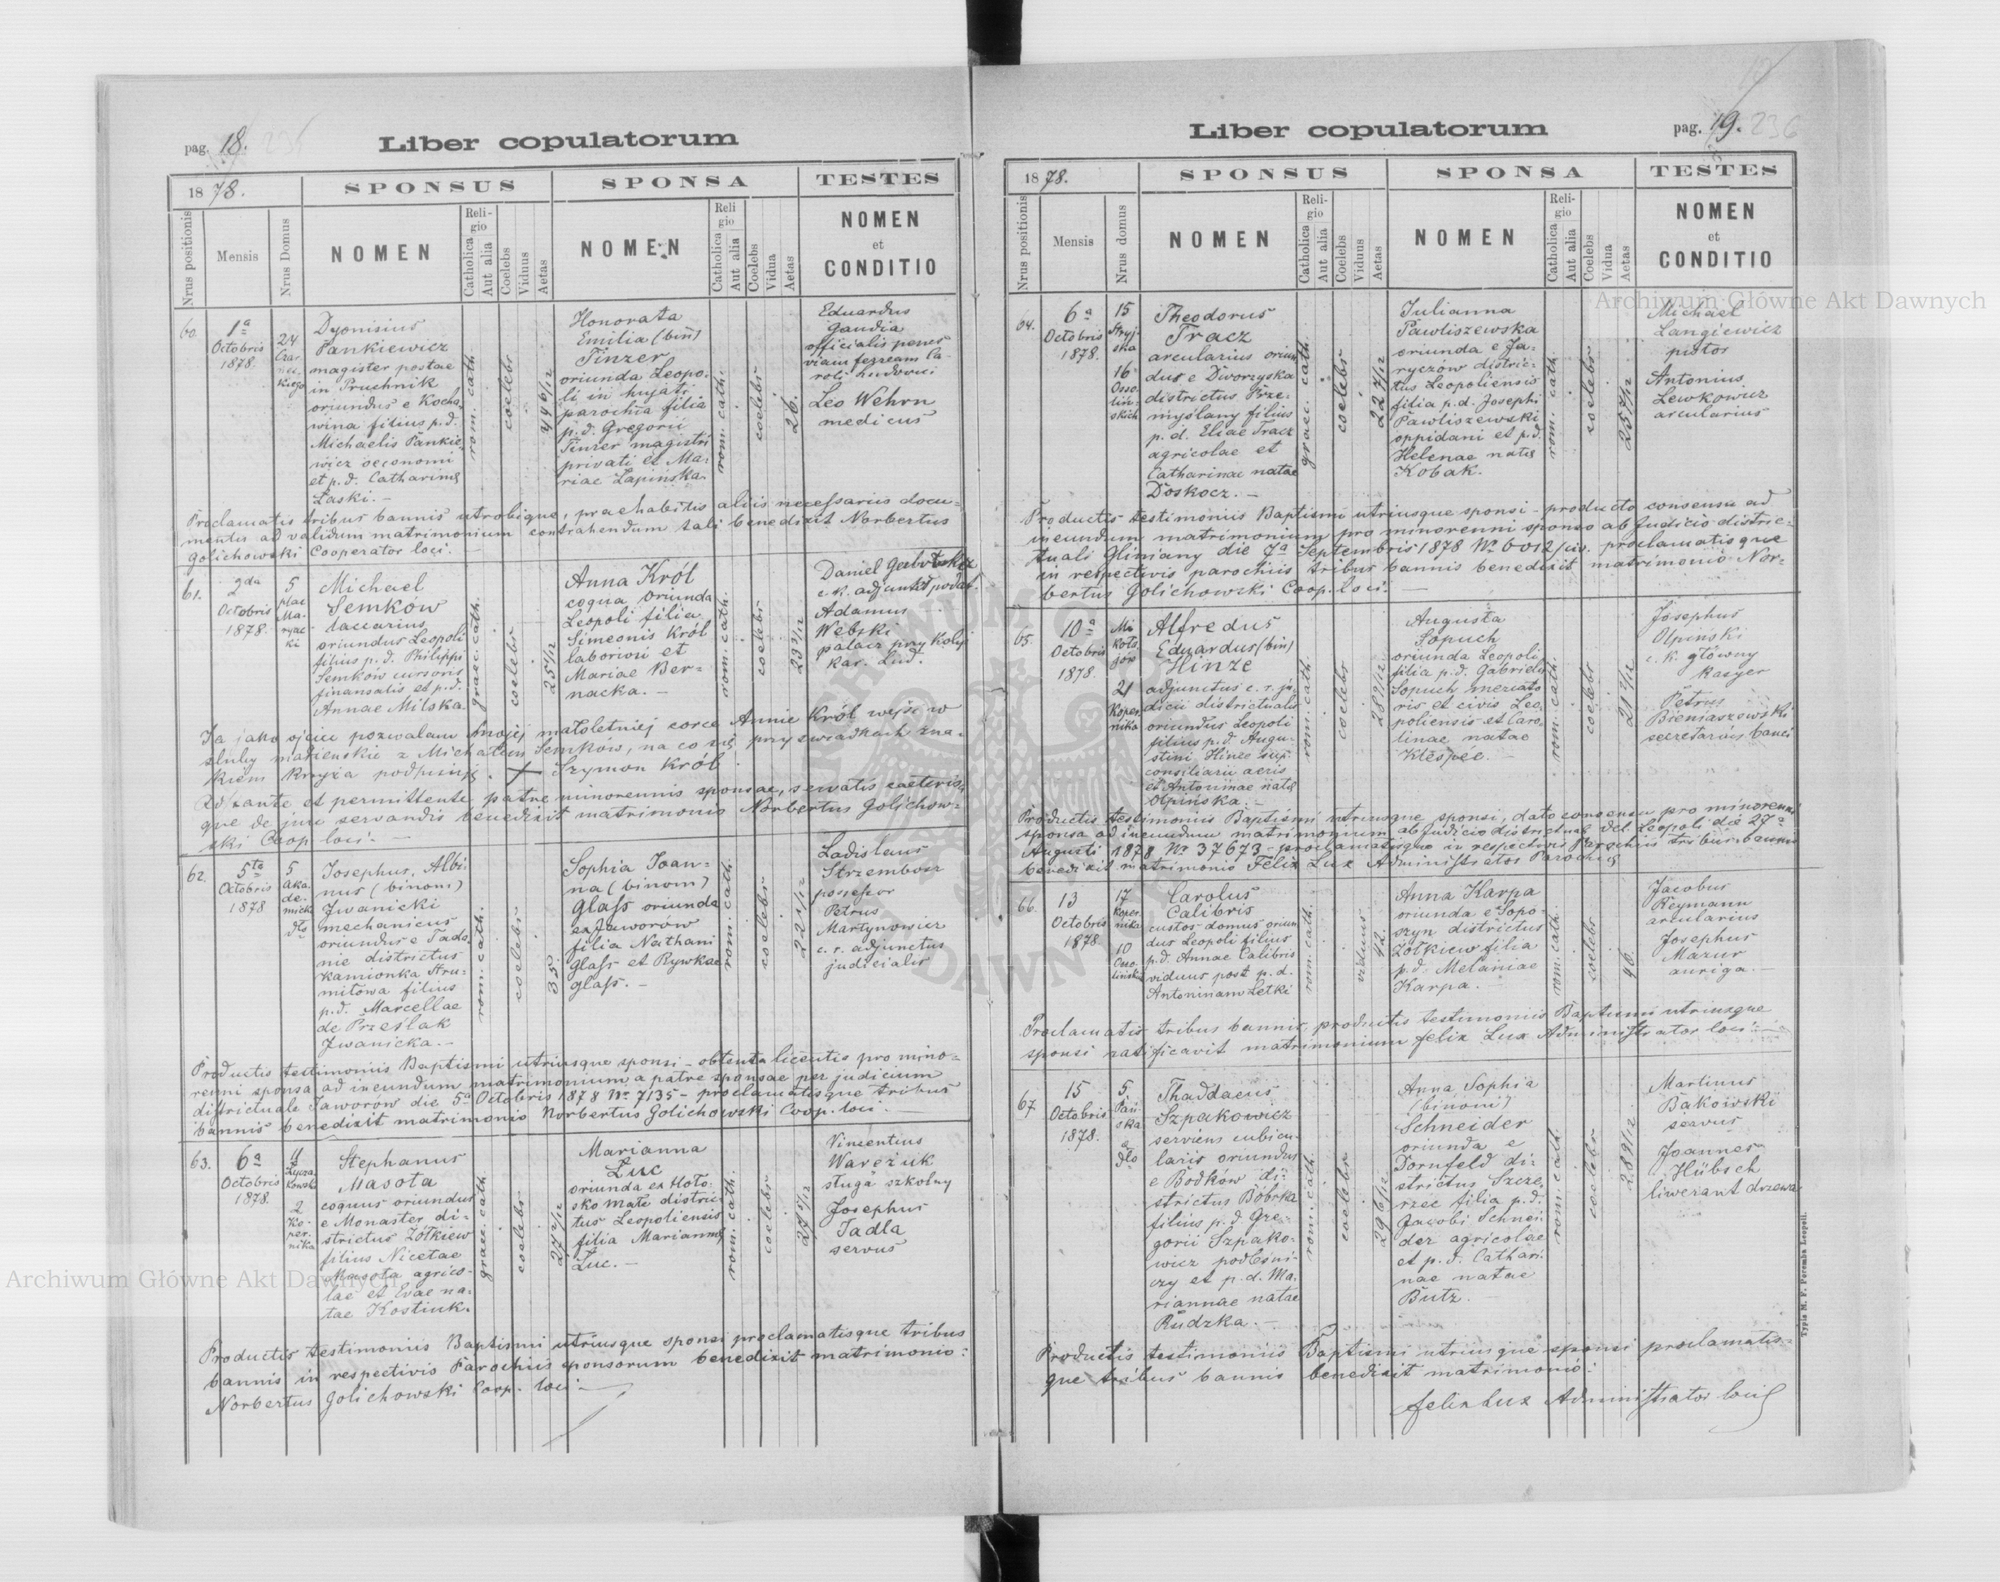 pag. 18.
Liber copulatorum
1878.
SPONSUS
SPONSA
TESTES
Nrus positionis
Mensis
Nrus Domus
NOMEN
Religio
Catholica
Aut alia
Coelebs
Viduus
Aetas
NOMEN
Religio
Catholica
Aut alia
Coelebs
Vidua
Aetas
NOMEN
et
CONDITIO
60.
1a
Octobris
1878.
24
Dyonisius
Pankiewicz
magister postae
in Pruchnik
oriundus e Kocha
wina filius p.d.
Michaelis Pankie
wicz oeconomi
et p.d. Catharinae
Laski. —
rom. cath.
coelebs
44 6/12
Honorata
Emilia (bin)
Tinzer
oriunda Leopo-
li in hujati
parochia filia
p.d. Gregorii
Tinzer magistri
privati et Ma-
riae Lapinska.
rom. cath.
coelebs
26.
Eduardus
Gaudia
officialis penes
viam ferream Ca-
roli Ludovici
Leo Wehrn
medicus
Proclamatis tribus bannis utrobique, praehabitis aliis necessariis docu-
mentis ad validum matrimonium contrahendum tali benedixit Norbertus
Golichowski Cooperator loci. —
61.
2da
Octobris
1878.
5
plac
Ma-
ryac
ki
Michael
Semków
laccarius
oriundus Leopoli
filius p.d. Philippi
Semków cursoris
finansalis et p.d.
Annae Milska.
graec. cath.
coelebs
25 1/12
Anna Król
coqua oriunda
Leopoli filia
Simeonis Król
laboriosi et
Mariae Ber-
nacka. —
rom. cath.
coelebs
23 3/12
Daniel
c. k. adjunkt podat.
Adamus
Webski
palacz przy Kolej
Kar. Lud.
Ja jako ojciec pozwalam swojej małoletniej corce Annie Król wejść w
śluby małżeńskie z Michałem Semków, na co się przy świadkach zna-
kiem krzyża podpisuję. + Szymon Król
Adstante et permittente patre minorennis sponsae, servatis caeteris-
que de jure servandis benedixit matrimonio Norbertus Golichow-
ski Coop. loci. —
62.
5ta
Octobris
1878
5
Aka
de-
micka
dto
Josephus, Albi-
nus (binom)
Jwanicki
mechanicus
oriundus e Tada
nie districtus
Kamionka Stru-
miłowa filius
p.d. Marcellae
de Przeslak
Jwanicka. —
rom. cath.
coelebs
35.
Sophia Joan-
na (binom)
Glass oriunda
ex Jaworów
filia Nathani
Glass et Rywkae
Glass. —
rom. cath.
coelebs
22 1/12
Ladislaus
Strzembosz
possessor
Petrus
Martynowicz
c. r. adjunctus
judicialis
Productis testimoniis Baptismi utriusque sponsi - obtenta licentia pro mino-
renni sponsa ad ineundum matrimonium a patre sponsae per judicium
districtuale Jaworów die 5a Octobris 1878 No 7135 - proclamatisque tribus
bannis benedixit matrimonio Norbertus Golichowski Coop. loci.
63.
6a
Octobris
1878.
11
Łycza
kowska
2
Ko-
per-
nika
Stephanus
Masota
coquus oriundus
e Monaster di-
strictus Żółkiew
filius Nicetae
Masota agrico-
lae et Evae na-
tae Kostiuk.
graec. cath.
coelebs
27 2/12
Marianna
Luc
oriunda ex Hoło-
sko małe distric-
tus Leopoliensis
filia Mariannae
Luc. —
rom. cath.
coelebs
Vincentius
Warežuk
sługa szkolny
Josephus
Tadla
servus
Productis testimoniis Baptismi utriusque sponsi proclamatisque tribus
bannis in respectivis Parochiis sponsorum benedixit matrimonio:
Norbertus Golichowski Coop. loci —
pag. 19. 236
Liber copulatorum
1878.
SPONSUS
SPONSA
TESTES
Nrus positionis
Mensis
Nrus domus
NOMEN
Religio
Catholica
Aut alia
Coelebs
Viduus
Aetas
NOMEN
Religio
Catholica
Aut alia
Coelebs
Vidua
Aetas
NOMEN
et
CONDITIO
64.
6a
Octobris
1878.
15
Stryj-
ska
16
Osso
liń-
skich
Theodorus
Tracz
arcularius oriun
dus e Dworzyska
districtus Prze-
myślany filius
p.d. Eliae Tracz
agricolae et
Catharinae natae
Doskocz. —
graec. cath.
coelebs
22 7/12
Julianna
Pawliszewska
oriunda e Ja-
ryczów distric-
tus Leopoliensis
filia p.d. Josephi
Pawliszewski
oppidani et p.d.
Helenae natae
Kobak.
rom. cath.
coelebs
25 7/12
Michael
Langiewicz
pistor
Antonius
Lewkowicz
arcularius
Productis testimoniis Baptismi utriusque sponsi - producto consensu ad
ineundum matrimonium pro minorenni sponso ab Judicio distric-
tuali Gliniany die 7a Septembris 1878 No 6012/civ. proclamatisque
in respectivis parochiis tribus bannis benedixit matrimonio Nor-
bertus Golichowski Coop. loci. —
65.
10a
Octobris
1878.
Mi
koła-
jów
21
Koper-
nika
Alfredus
Eduardus (bin)
Hinze
adjunctus c. r. ju-
dicii districtualis
oriundus Leopoli
filius p.d. Augu-
stini Hinze sup.
consiliarii aeris
et Antoninae natae
Olpińska. —
rom. cath.
coelebs
28 9/12
Augusta
Sopuch
oriunda Leopoli
filia p.d. Gabrielis
Sopuch mercato
ris et civis Leo-
poliensis et Caro-
linae natae
Klespee. —
rom. cath.
coelebs
Josephus
Olpiński
c. k. główny
kasyer
Petrus
Bieniaszewski
secretarius banci
Productis testimoniis Baptismi utriusque sponsi, dato consensu pro minorenni
sponsa ad ineundum matrimonium ab Judicio districtuali Del. Leopoli die 27a
Augusti 1878 No 37673 - proclamatisque in respectivis Parochiis tribus bannis
benedixit matrimonio Felix Lux Administrator Parochiae
66.
13
Octobris
1878
17
Koper-
nika
10
Osso-
lińska
Carolus
Calibris
custos domus oriun
dus Leopoli filius
p.d. Annae Calibris
viduus post p.d.
Antoninam Letki
rom. cath.
viduus
42.
Anna Karpa
oriunda e Sopo-
szyn districtus
Żółkiew filia
p.d. Melaniae
Karpa. —
rom. cath.
coelebs
46.
Jacobus
Reymann
arcularius
Josephus
Mazur
auriga. —
Proclamatis tribus bannis, productis testimoniis Baptismi utriusque
sponsi ratificavit matrimonium Felix Lux Administrator loci. —
67.
15
Octobris
1878.
5.
Pań-
ska
a
dto
Thaddaeus
Szpakowicz
serviens cubicu-
laris oriundus
e Bodków di-
strictus Bóbrka
filius p.d. Gre-
gorii Szpako-
wicz podleśni-
czy et p.d. Ma-
riannae natae
Rudzka. —
rom. cath.
coelebs
29 6/12
Anna Sophia
(binoni)
Schneider
oriunda e
Dornfeld di-
strictus Szcze-
rzec filia p.d.
Jacobi Schnei-
der agricolae
et p.d. Cathari-
nae natae
Butz. —
rom. cath.
coelebs
28 9/12
Martinus
Bakowski
servus
Joannes
Hübsch
liwerant drzewa
Productis testimoniis Baptismi utriusque sponsi proclamatis-
que tribus bannis benedixit matrimonio:
Felix Lux Administrator loci
Typis M. F. Poremba Leopoli.
Archiwum Główne Akt Dawnych
Archiwum Główne Akt Dawnych